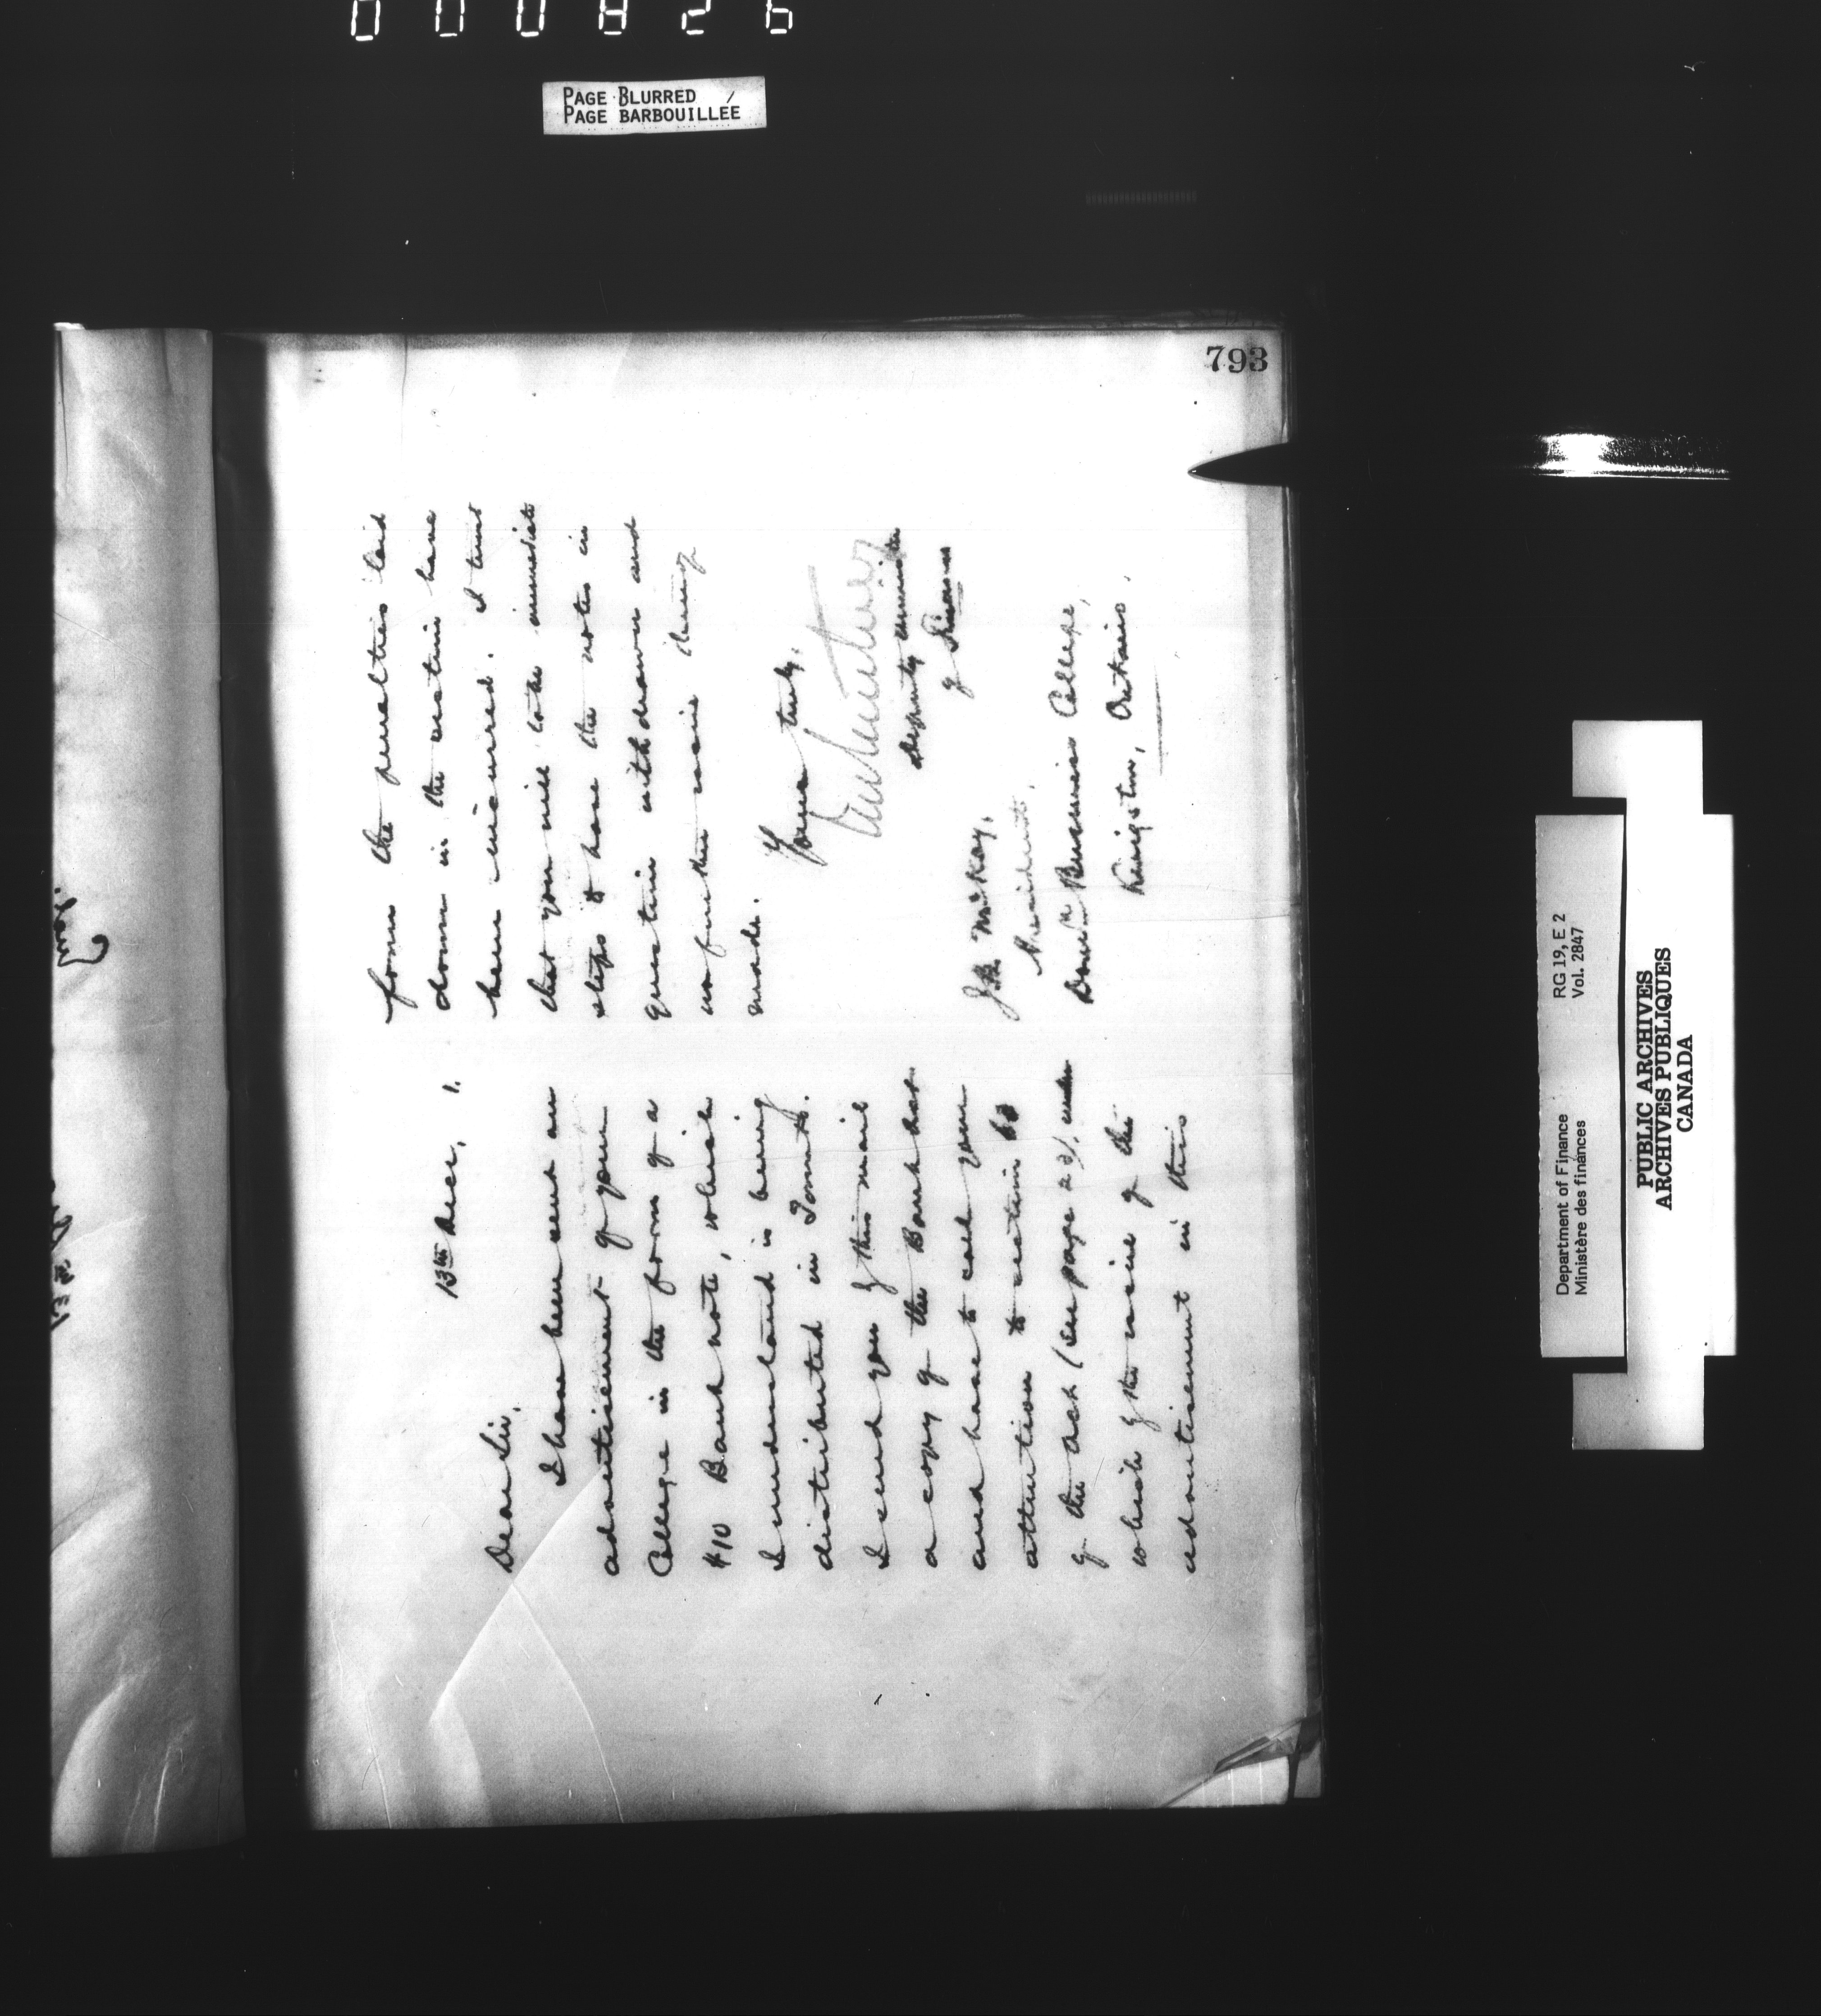 000826
PAGE BLURRED
PAGE BARBOUILLÉE
793
13th Dec, 1.
Dear Sir,
I have been sent an
advertisement of your
College in the form of a
$10 Bank note, which
I understand is being
distributed in Toronto.
I send you by this mail
a copy of the Bank Act
and have to call your
attention to section
of the Act (see page 23) under
which the issue of the
advertisement in this
form the penalties laid
down in the section have
been incurred. I trust
that you will take immediate
steps to have the notes in
question withdrawn and
no further issue thereof
made.
Yours truly,
Deputy Minister
of Finance
J.B. McKay,
President,
Domn Business College,
Kingston, Ontario.
Department of Finance
Ministère des finances
RG 19, E 2
Vol. 2847
PUBLIC ARCHIVES
ARCHIVES PUBLIQUES
CANADA